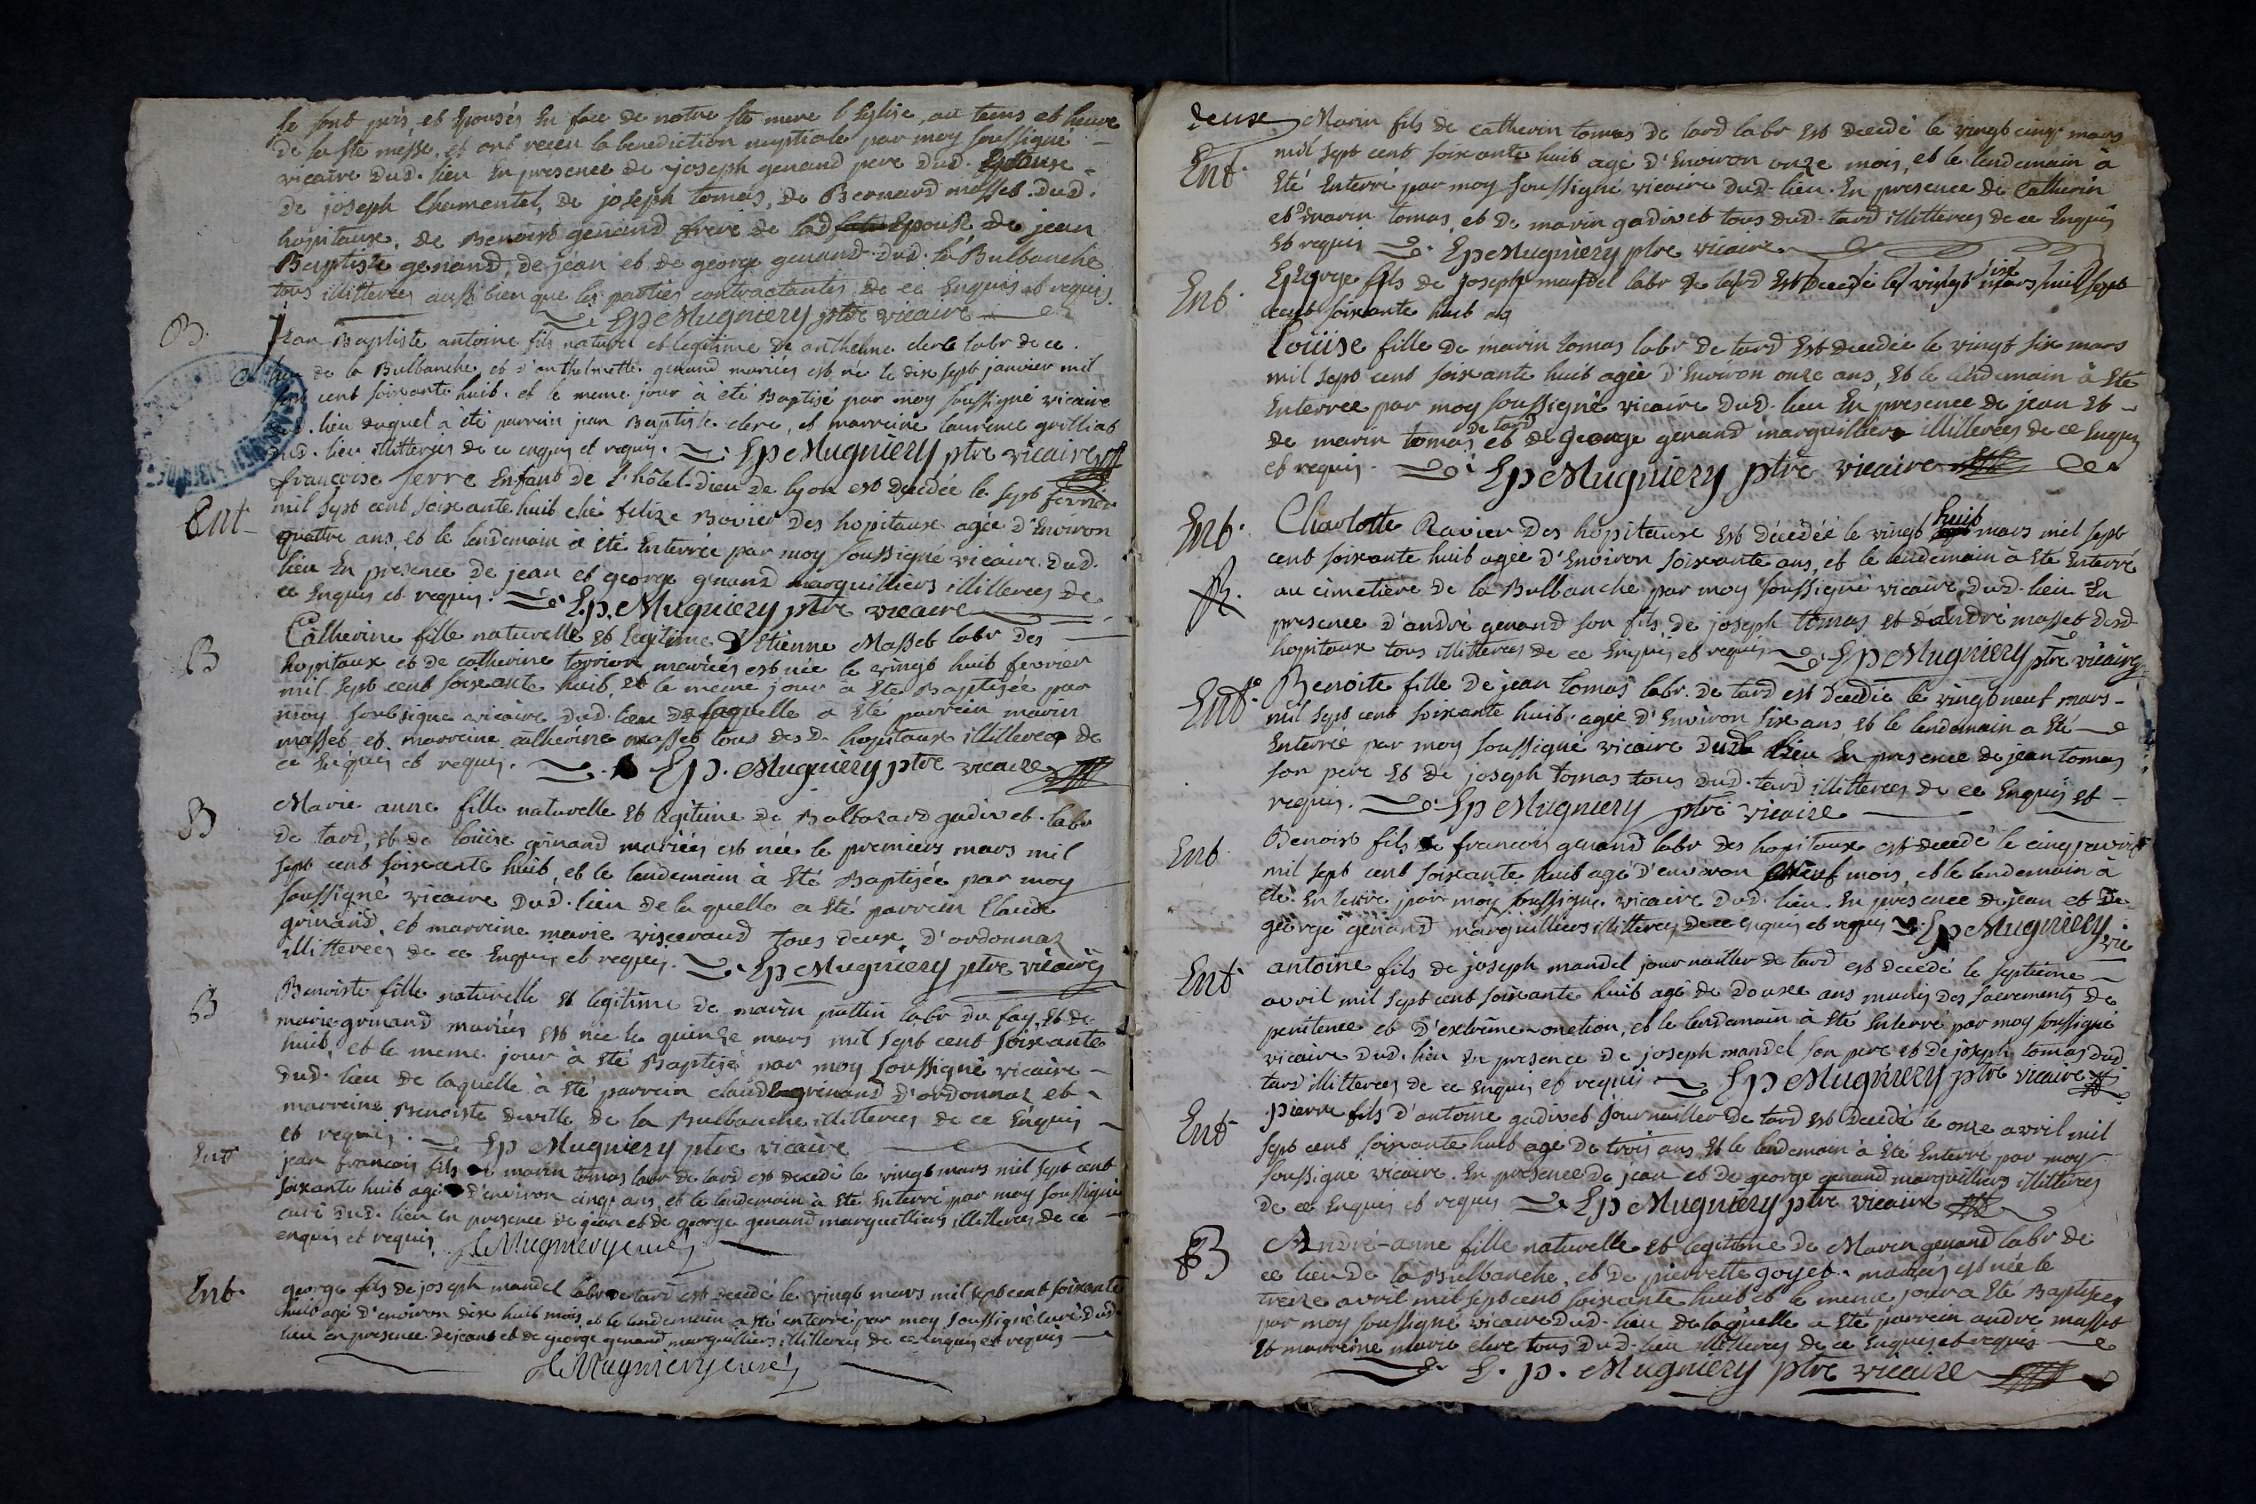 se sont pris, et Epousés En face de notre ste mere l'Eglise, au tems et heure
de la ste messe, et ont receu la benediction nuptiale par moy soussigné
vicaire dud. lieu En presence de joseph genand pere dud. Epouse
de joseph Chamentel, de joseph tomas, de Bernard masset dud.
hopitaux, de Benoist genand frere de lad Epouse de jean
Baptiste genand, de jean et de george genand dud. la Bulbanche
tous illitterées aussi bien que les parties contractantes de ce Enquis et requis.
Ep Mugniery ptre vicaire
B. Jean Baptiste antoine fils naturel et legitime de anthelme clerc labr de ce
de la Bulbanche et d'anthelmette genand mariés est né le dix sept janvier mil
sept cent soixante huit. et le meme jour à été Baptisé par moy soussigné vicaire
lieu duquel à été parrain jean Baptiste clerc, et marreine laurence grilliat
dud. lieu illitterés de ce enquis et requis. Ep Mugniery ptre vicaire
francoise serre Enfant de l'hôtel-dieu de lyon est decedée le sept fevrier
Ent mil sept cent soixante huit ché felize Bovier des hopitaux agée d'Environ
quattre ans, et le lendemain a été Enterrée par moy soussigné vicaire dud.
lieu En presence de jean et george genand marguilliers illitterées de
ce Enquis et requis. E.p. Mugniery ptre vicaire
Catherine fille naturelle et legitime d'Etienne Masset labr des
B hopitaux et de catherine terrier mariées est née le vingt huit fevrier
mil sept cent soixante huit, et le meme jour a été Baptisée par
moy soubsigné vicaire dud. lieu de laquelle a été parrein marin
masset et marreine catherine masset tous des d. hopitaux illitterées de
ce Enquis et requis. Ep. Mugniery ptre vicaire
Marie anne fille naturelle et legitime de Baltazard gadivet labr
B de tard, et de louïse grinand mariées est née le premiers mars mil
sept cent soixante huit, et le lendemain à été Baptisée par moy
soussigné vicaire dud. lieu de la quelle a été parrein Claude
grinand, et marreine marie viseraud tous deux d'ordonnaz
illitterées de ce Enquis et requis. Ep Mugniery ptre vicaire
B Benoiste fille naturelle et legitime de marin pottin labr du fay, et de
marie grinand mariées est née le quinze mars mil sept cent soixante
huit, et le meme jour à été Baptisé par moy soussigné vicaire
dud. lieu de laquelle à été parrein claude grinand d'ordonnaz et
marreine Benoiste deville de la Bulbanche illitterées de ce Enquis
et requis. Ep Mugniery ptre vicaire
Ent jean francois fils de marin tomas labr de tard est decedé le vingt mars mil sept cent
soixante huit agé d'environ cinq ans, et le lendemain à été Enterré par moy soussigné
curé dud. lieu en presence de jean et de george genand marguilliers illitterées de ce
enquis et requis Mugniery curé
Ent. george fils de joseph mandel labr de tard est decedé le vingt mars mil sept cent soixante
huit agé d'environ dix huit mois, et le lendemain a été enterré par moy soussigné curé dud.
lieu en presence de jean et de george genand marguilliers illitterées de ce enquis et requis
Mugniery curé
deux Marin fils de catherin tomas de tard labr est decedé le vingt cinq mars
Ent. mil sept cent soixante huit agé d'Environ onze mois, et le lendemain à
été Enterré par moy soussigné vicaire dud. lieu. En presence de Catherin
et marin tomas, et de marin gadivet tous dud. tard illitterées de ce Enquis
et requis Ep Mugniery ptre vicaire
Ent. George fils de joseph mandel labr de tard est decedé le vingt six mars mil sept
cent soixante huit
Louïse fille de marin tomas labr de tard est decedée le vingt six mars
mil sept cent soixante huit agée d'Environ onze ans, et le lendemain à été
Enterrée par moy soussigné vicaire dud. lieu En presence de jean et
de marin tomas de tard et de george genand marguilliers illitterées de ce Enquis
et requis. Ep Mugniery ptre vicaire
Ent. Charlotte Ravier des hopitaux est décédée le vingt huit mars mil sept
cent soixante huit agée d'Environ soixante ans, et le lendemain à été Enterré
au cimetiere de la Bulbanche par moy soussigné vicaire dud. lieu En
presence d'andré genand son fils, de joseph tomas et d'andré masset desd.
hopitaux tous illitterées de ce Enquis et requis Ep Mugniery ptre vicaire
Ent. Benoite fille de jean tomas labr. de tard est decedée le vingt neuf mars
mil sept cent soixante huit, agée d'Environ six ans, et le lendemain a été
Enterré par moy soussigné vicaire dud. lieu En presence de jean tomas
son pere et de joseph tomas tous dud. tard illitterées de ce Enquis et
requis. Ep Mugniery ptre vicaire
Ent. Benoist fils de francois genand labr des hopitaux est decedé le cinq
mil sept cent soixante huit agé d'environ neuf mois, et le lendemain à
été Enterré par moy soussigné vicaire dud. lieu. En presence de jean et de
george genand marguilliers illitterées de ce Enquis et requis Ep Mugniery vic
Ent. antoine fils de joseph mandel journailler de tard est decedé le septième
avril mil sept cent soixante huit agé de douze ans munis des sacrements de
penitence et d'extrême onction, et le lendemain à été Enterré par moy soussigné
vicaire dud. lieu En presence de joseph mandel son pere et de joseph tomas dud.
tard illitterées de ce Enquis et requis Ep Mugniery ptre vicaire
Ent pierre fils d'antoine gadivet journailler de tard est decedé le onze avril mil
sept cent soixante huit agé de trois ans, et le lendemain à été Enterré par moy
soussigné vicaire. En presence de jean et de george genand marguilliers illitterées
de ce Enquis et requis Ep Mugniery ptre vicaire
B André-anne fille naturelle et legitime de Marin genand labr de
ce lieu de la Bulbanche, et de pierrette goyet mariées est née le
treize avril mil sept cent soixante huit et le meme jour a été Baptisée
par moy soussigné vicaire dud. lieu de laquelle a été parrein andré masset
et marreine marie clerc tous dud. lieu illitterées de ce Enquis et requis
E. p. Mugniery ptre vicaire